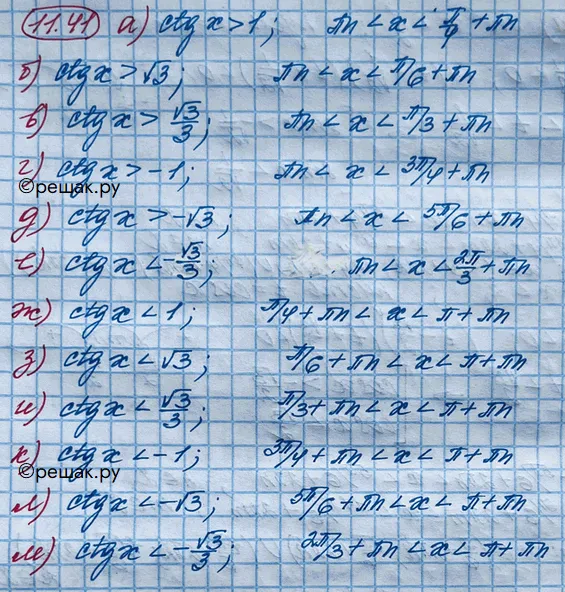 11.41 а) ctg x > 1; πn < x < π/4 + πn
б) ctg x > √3; πn < x < π/6 + πn
в) ctg x > √3/3; πn < x < π/3 + πn
г) ctg x > -1; πn < x < 3π/4 + πn
©решак.ру
д) ctg x > -√3; πn < x < 5π/6 + πn
е) ctg x < -√3/3; πn < x < 2π/3 + πn
ж) ctg x < 1; π/4 + πn < x < π + πn
з) ctg x < √3; π/6 + πn < x < π + πn
и) ctg x < √3/3; π/3 + πn < x < π + πn
к) ctg x < -1; 3π/4 + πn < x < π + πn
©решак.ру
л) ctg x < -√3; 5π/6 + πn < x < π + πn
м) ctg x < -√3/3; 2π/3 + πn < x < π + πn